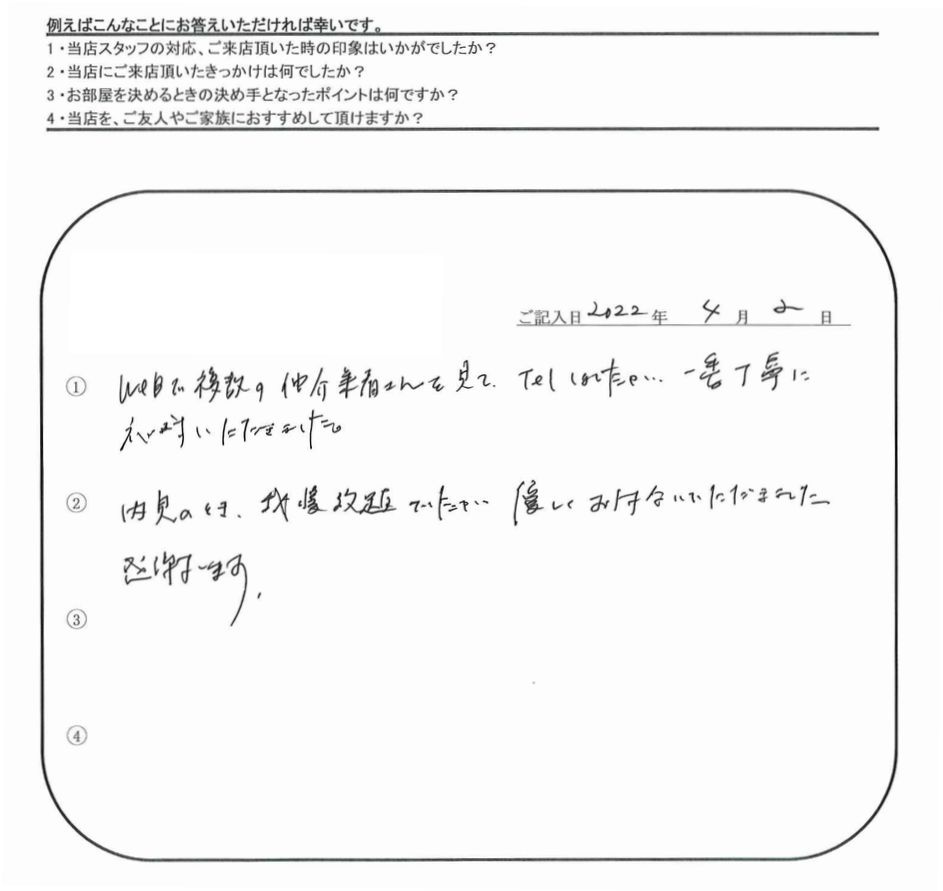 例えばこんなことにお答えいただければ幸いです。
1・当店スタッフの対応、ご来店頂いた時の印象はいかがでしたか？
2・当店にご来店頂いたきっかけは何でしたか？
3・お部屋を決めるときの決め手となったポイントは何ですか？
4・当店を、ご友人やご家族におすすめして頂けますか？
ご記入日 2022 年 4 月 2 日
① WEBで複数の仲介業者さんを見て、Telしました 一番丁寧に
いただきました。
② 内見のとき、我儘放題 優しく いただきました
感謝します。
③
④